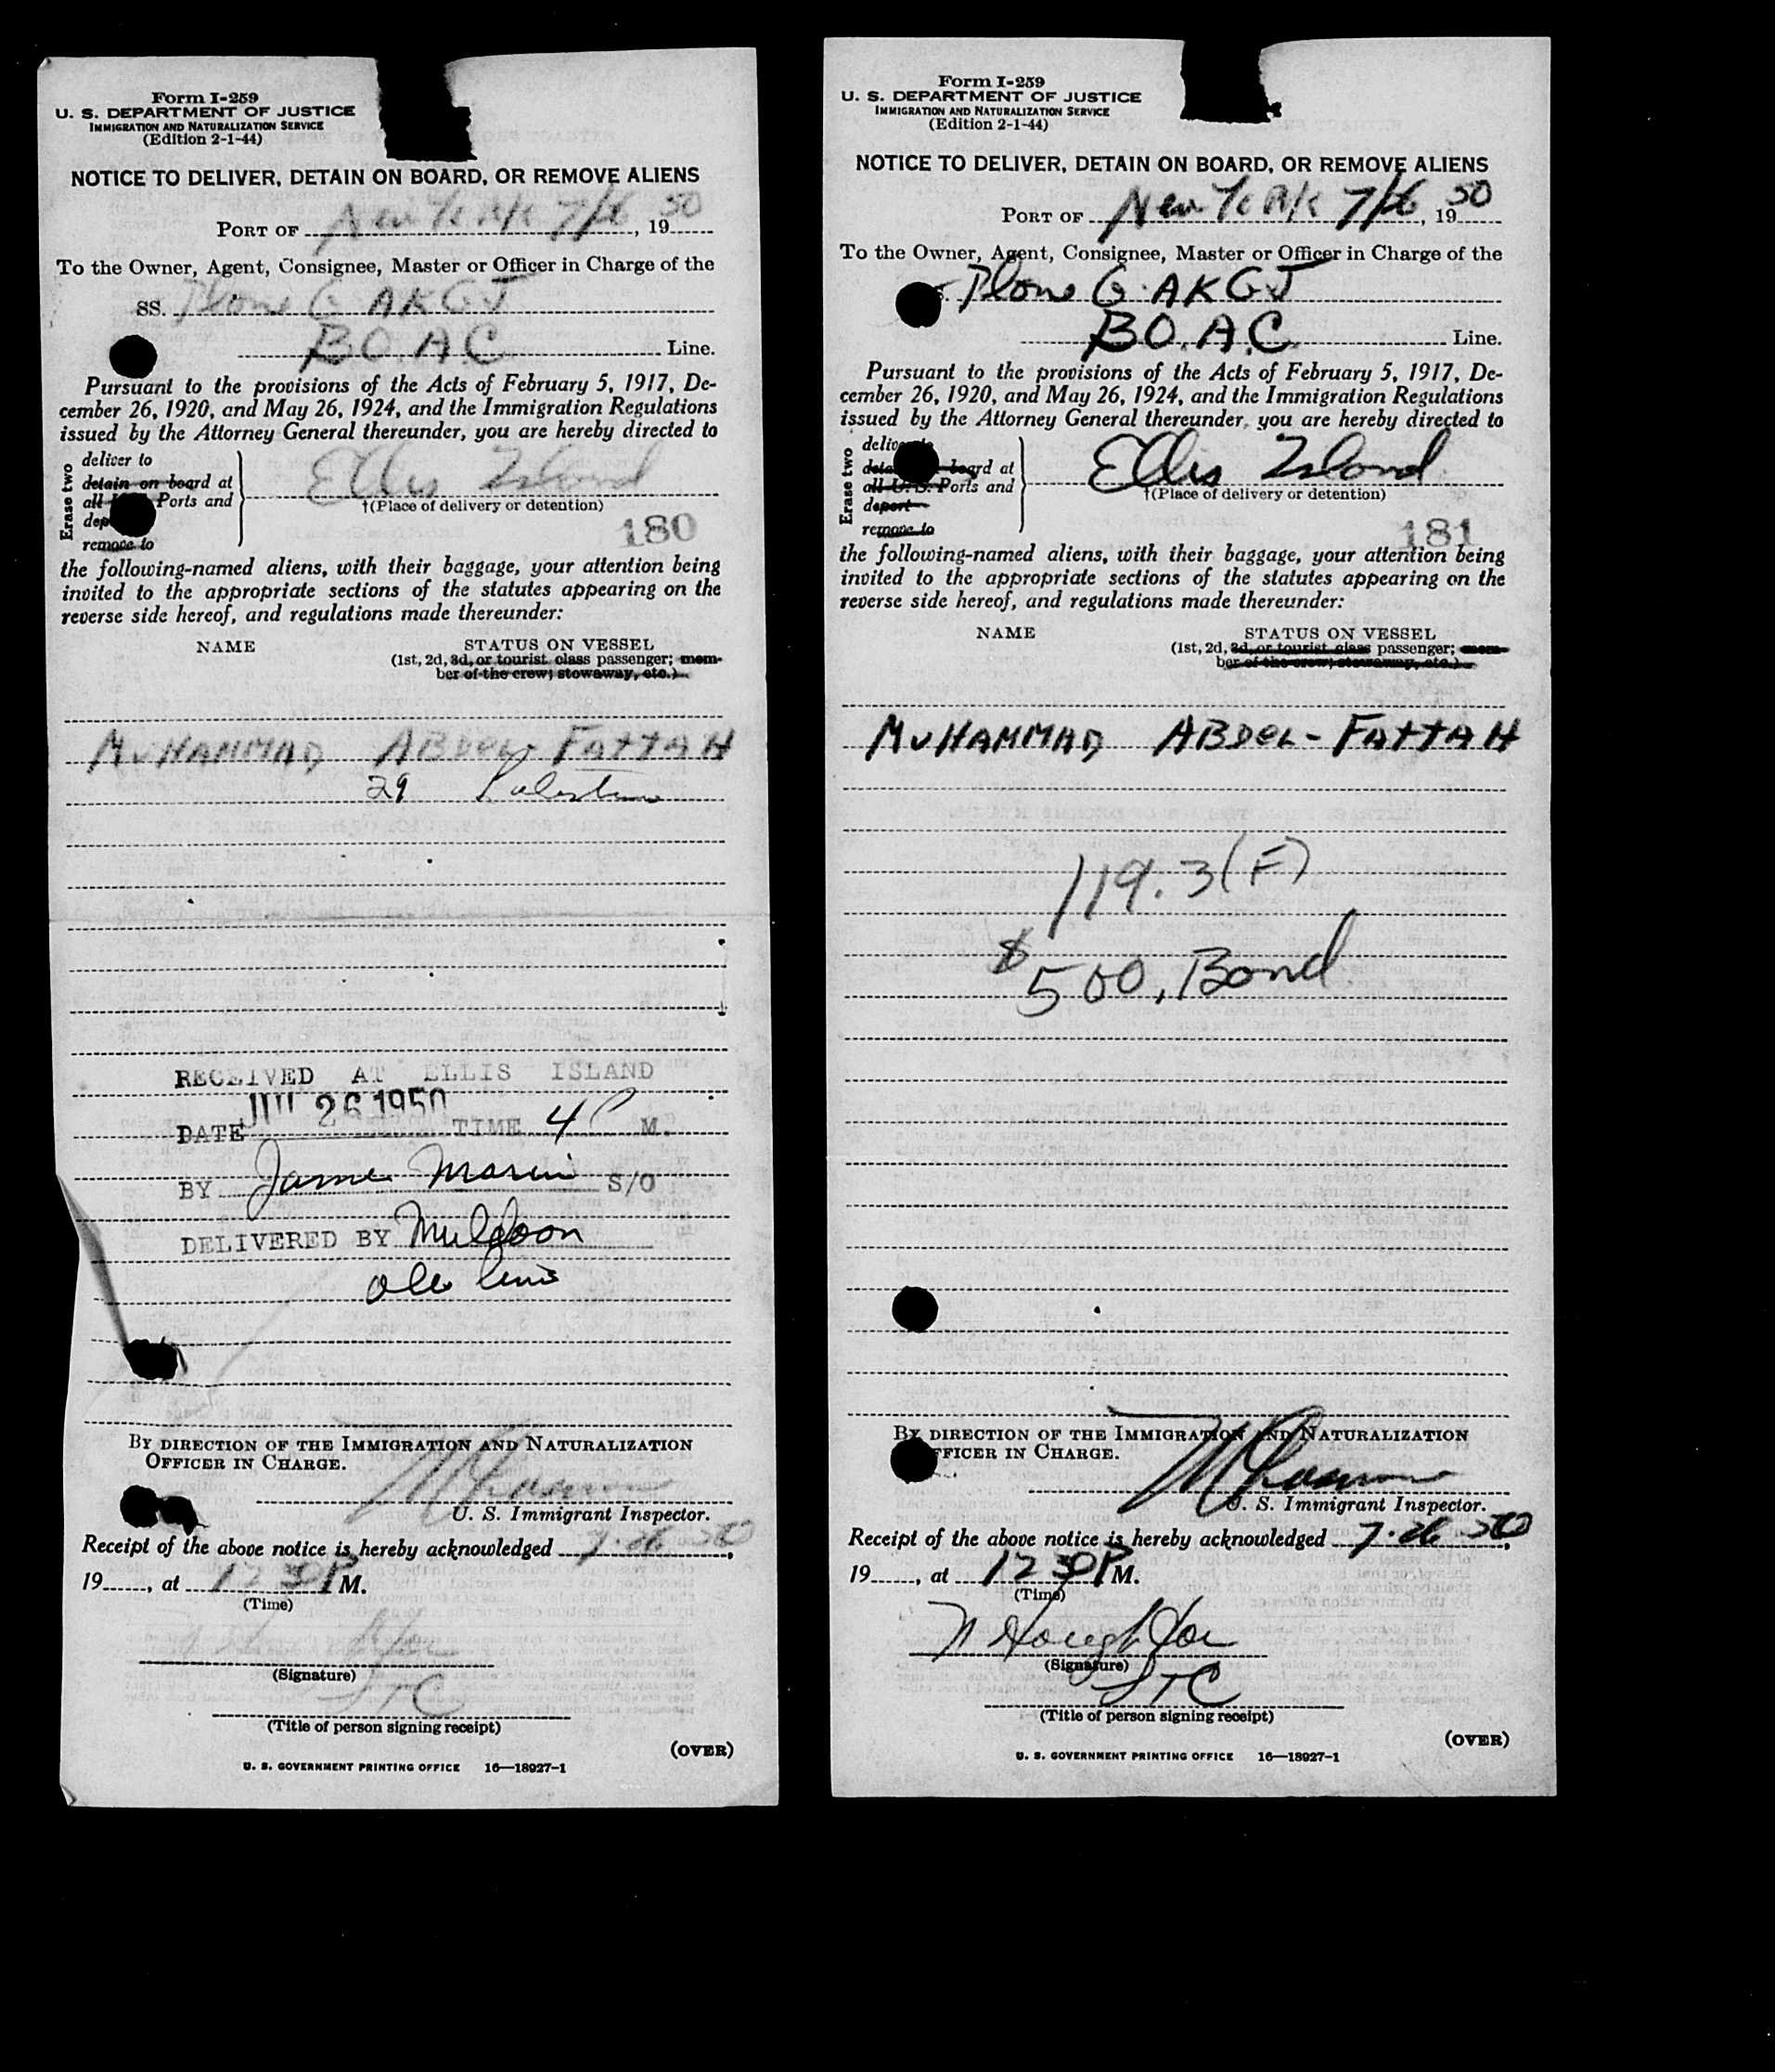 Form I-259
U. S. DEPARTMENT OF JUSTICE
IMMIGRATION AND NATURALIZATION SERVICE
(Edition 2-1-44)
NOTICE TO DELIVER, DETAIN ON BOARD, OR REMOVE ALIENS
PORT OF New York 7/26, 19 50
To the Owner, Agent, Consignee, Master or Officer in Charge of the
SS. Plane G AKGJ
B O. A C Line.
Pursuant to the provisions of the Acts of February 5, 1917, De-
cember 26, 1920, and May 26, 1924, and the Immigration Regulations
issued by the Attorney General thereunder, you are hereby directed to
Erase two
deliver to
detain on board at
all Ports and
dep
remove to
Ellis Island
†(Place of delivery or detention)
180
the following-named aliens, with their baggage, your attention being
invited to the appropriate sections of the statutes appearing on the
reverse side hereof, and regulations made thereunder:
NAME STATUS ON VESSEL
(1st, 2d, 3d, or tourist class passenger; mem-
ber of the crew; stowaway, etc.)
MUHAMMAD ABDEL-FATTAH
29 Palestine
RECEIVED AT ELLIS ISLAND
DATE JUL 26 1950 TIME 4 P M.
BY James S/O
DELIVERED BY Muldoon
BY DIRECTION OF THE IMMIGRATION AND NATURALIZATION
OFFICER IN CHARGE.
U. S. Immigrant Inspector.
Receipt of the above notice is hereby acknowledged 7-26 50,
19, at 12 30 P M.
(Time)
(Signature)
LTC
(Title of person signing receipt)
(OVER)
U. S. GOVERNMENT PRINTING OFFICE 16—18927-1
Form I-259
U. S. DEPARTMENT OF JUSTICE
IMMIGRATION AND NATURALIZATION SERVICE
(Edition 2-1-44)
NOTICE TO DELIVER, DETAIN ON BOARD, OR REMOVE ALIENS
PORT OF New York 7/26, 19 50
To the Owner, Agent, Consignee, Master or Officer in Charge of the
Plane G. AKGJ
B O. A. C. Line.
Pursuant to the provisions of the Acts of February 5, 1917, De-
cember 26, 1920, and May 26, 1924, and the Immigration Regulations
issued by the Attorney General thereunder, you are hereby directed to
Erase two
deliver to
detain on board at
all U. S. Ports and
deport
remove to
Ellis Island
†(Place of delivery or detention)
181
the following-named aliens, with their baggage, your attention being
invited to the appropriate sections of the statutes appearing on the
reverse side hereof, and regulations made thereunder:
NAME STATUS ON VESSEL
(1st, 2d, 3d, or tourist class passenger; mem-
ber of the crew; stowaway, etc.)
MUHAMMAD ABDEL-FATTAH
119.3(F)
$500, Bond
BY DIRECTION OF THE IMMIGRATION AND NATURALIZATION
OFFICER IN CHARGE.
U. S. Immigrant Inspector.
Receipt of the above notice is hereby acknowledged 7-26 50,
19, at 12 30 P M.
(Time)
(Signature)
LTC
(Title of person signing receipt)
(OVER)
U. S. GOVERNMENT PRINTING OFFICE 16—18927-1